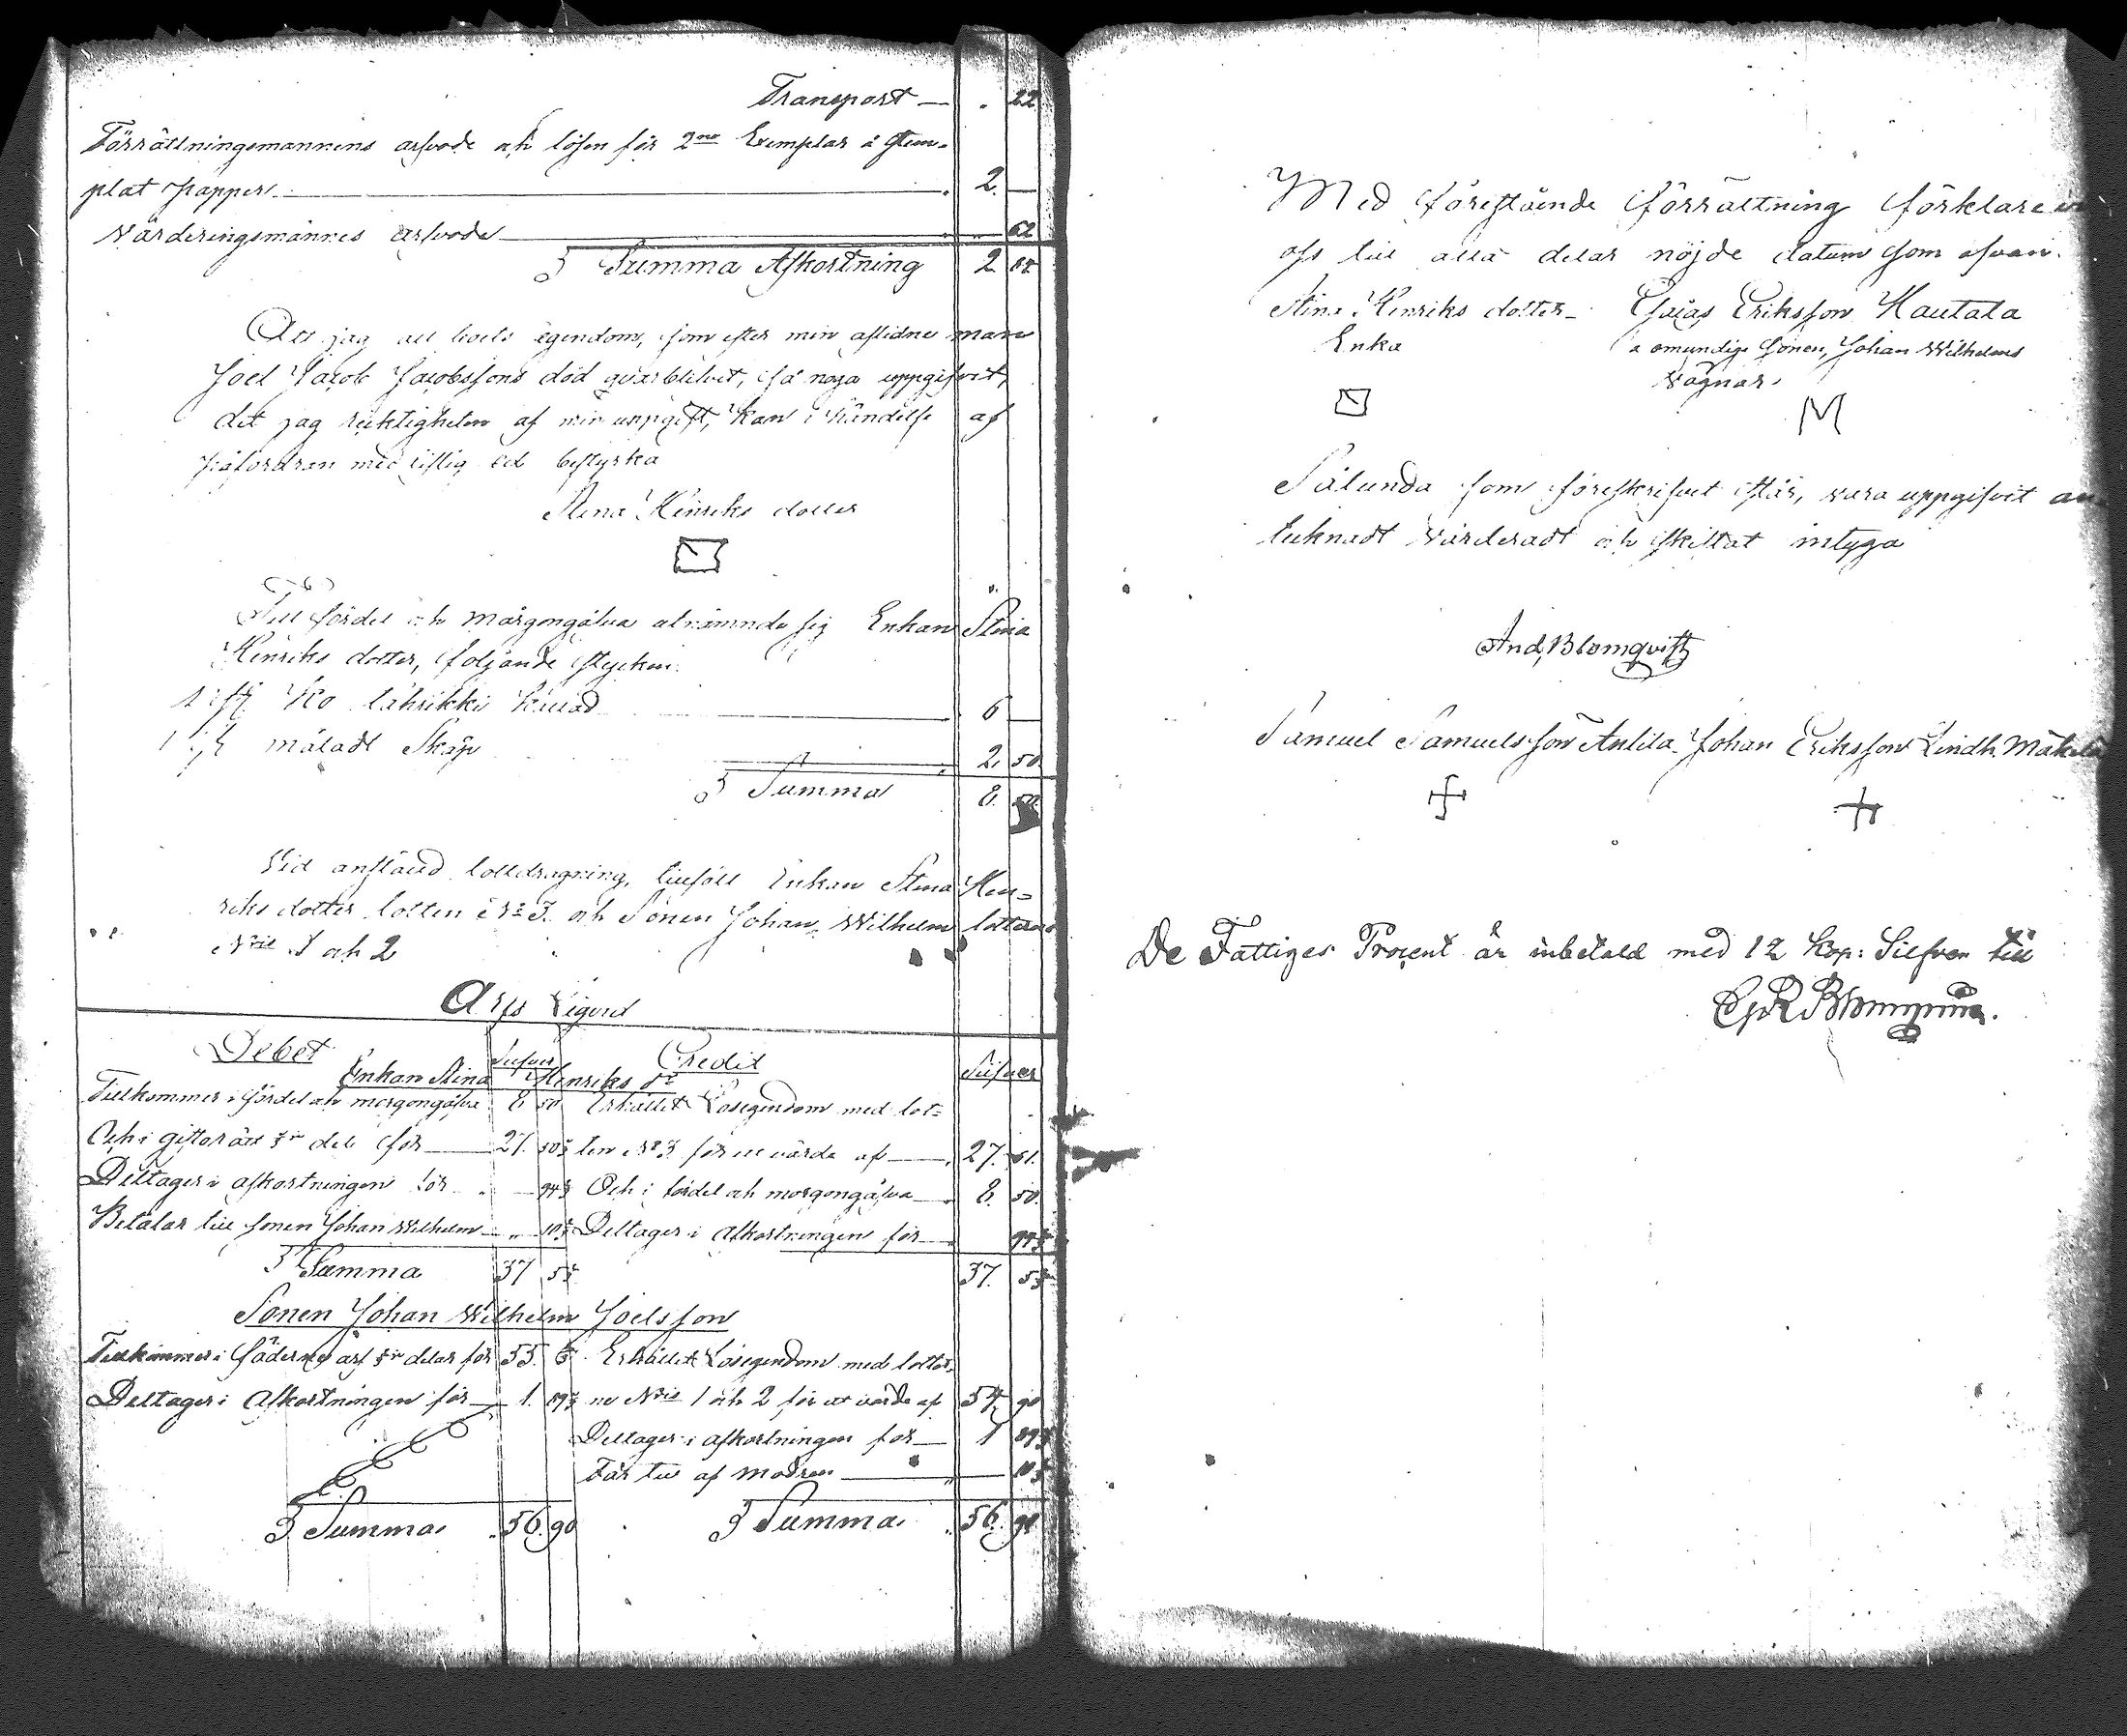 Transport — . 22
Förrättningsmannens arfvode och lösen för 2ne Exemplar å Stem-
plat papper. — 2. —
Värderingsmännes arfvode — 62
Summa Afkortning 2 84
Att jag all boets egendom, som efter min aflidne man
Joel Jacob Jacobssons död qvarblifvit, så noga uppgifvit,
det jag ricktigheten af min uppgift, kan i händelse af
påfordran med liflig ed bestyrka
Stina Henriks dotter
Till fördel och morgongåfva utnämnde sig Enkan Stina
Henriks dotter, följande stycken.
1 st Ko kallad — 6 —
1 st måladt Skåp 2. 50
Summa 8. 50.
Vid anstäld lottdragning, tillföll Enkan Stina Hen-
riks dotter lotten No 3. och Sonen Johan Wilhelm lotterne
Nris 1 och 2
Arfs Liqvid
Debet Silfver Credit Silfver
Enkan Stina Henriks dr
Tillkommer i fördel och morgongåfva 8 50 Erhållit Lösegendom med lot-
Och i giftorätt del för — 27. ten No 3 för ett värde af — 27. 61.
Deltager i afkortningen för Och i fördel och morgongåfva — 8. 50.
Betalar till sonen Johan Wilhelm — Deltager i Afkortningen för —
Summa 37 37.
Sonen Johan Wilhelm Joelsson
Tillkommer i fäderne arf delar för 55. Erhållit Lösegendom med lotter-
Deltager i Afkortningen för — 1. ne Nris 1 och 2 för ett värde af 54 90
Deltager i afkortningen för — 1
Får till af modren —
Summa 56. 90 Summa 56. 90
Med förestående förrättning förklare vi
oss till alla delar nöjde datum som ofvan.
Stina Henriks dotter Esaias Eriksson Hautala
Enka omyndige Sonen, Johan Wilhelms
vägnar
M
Sålunda som föreskrifvet står, vara uppgifvit an-
tecknadt värderadt och skiftat intyga
And, Blomqvist
Samuel Samuelsson Antila Johan Eriksson Lindh. Mäkelä
De Fattiges Procent är inbetald med 12 Kop: Silfver till